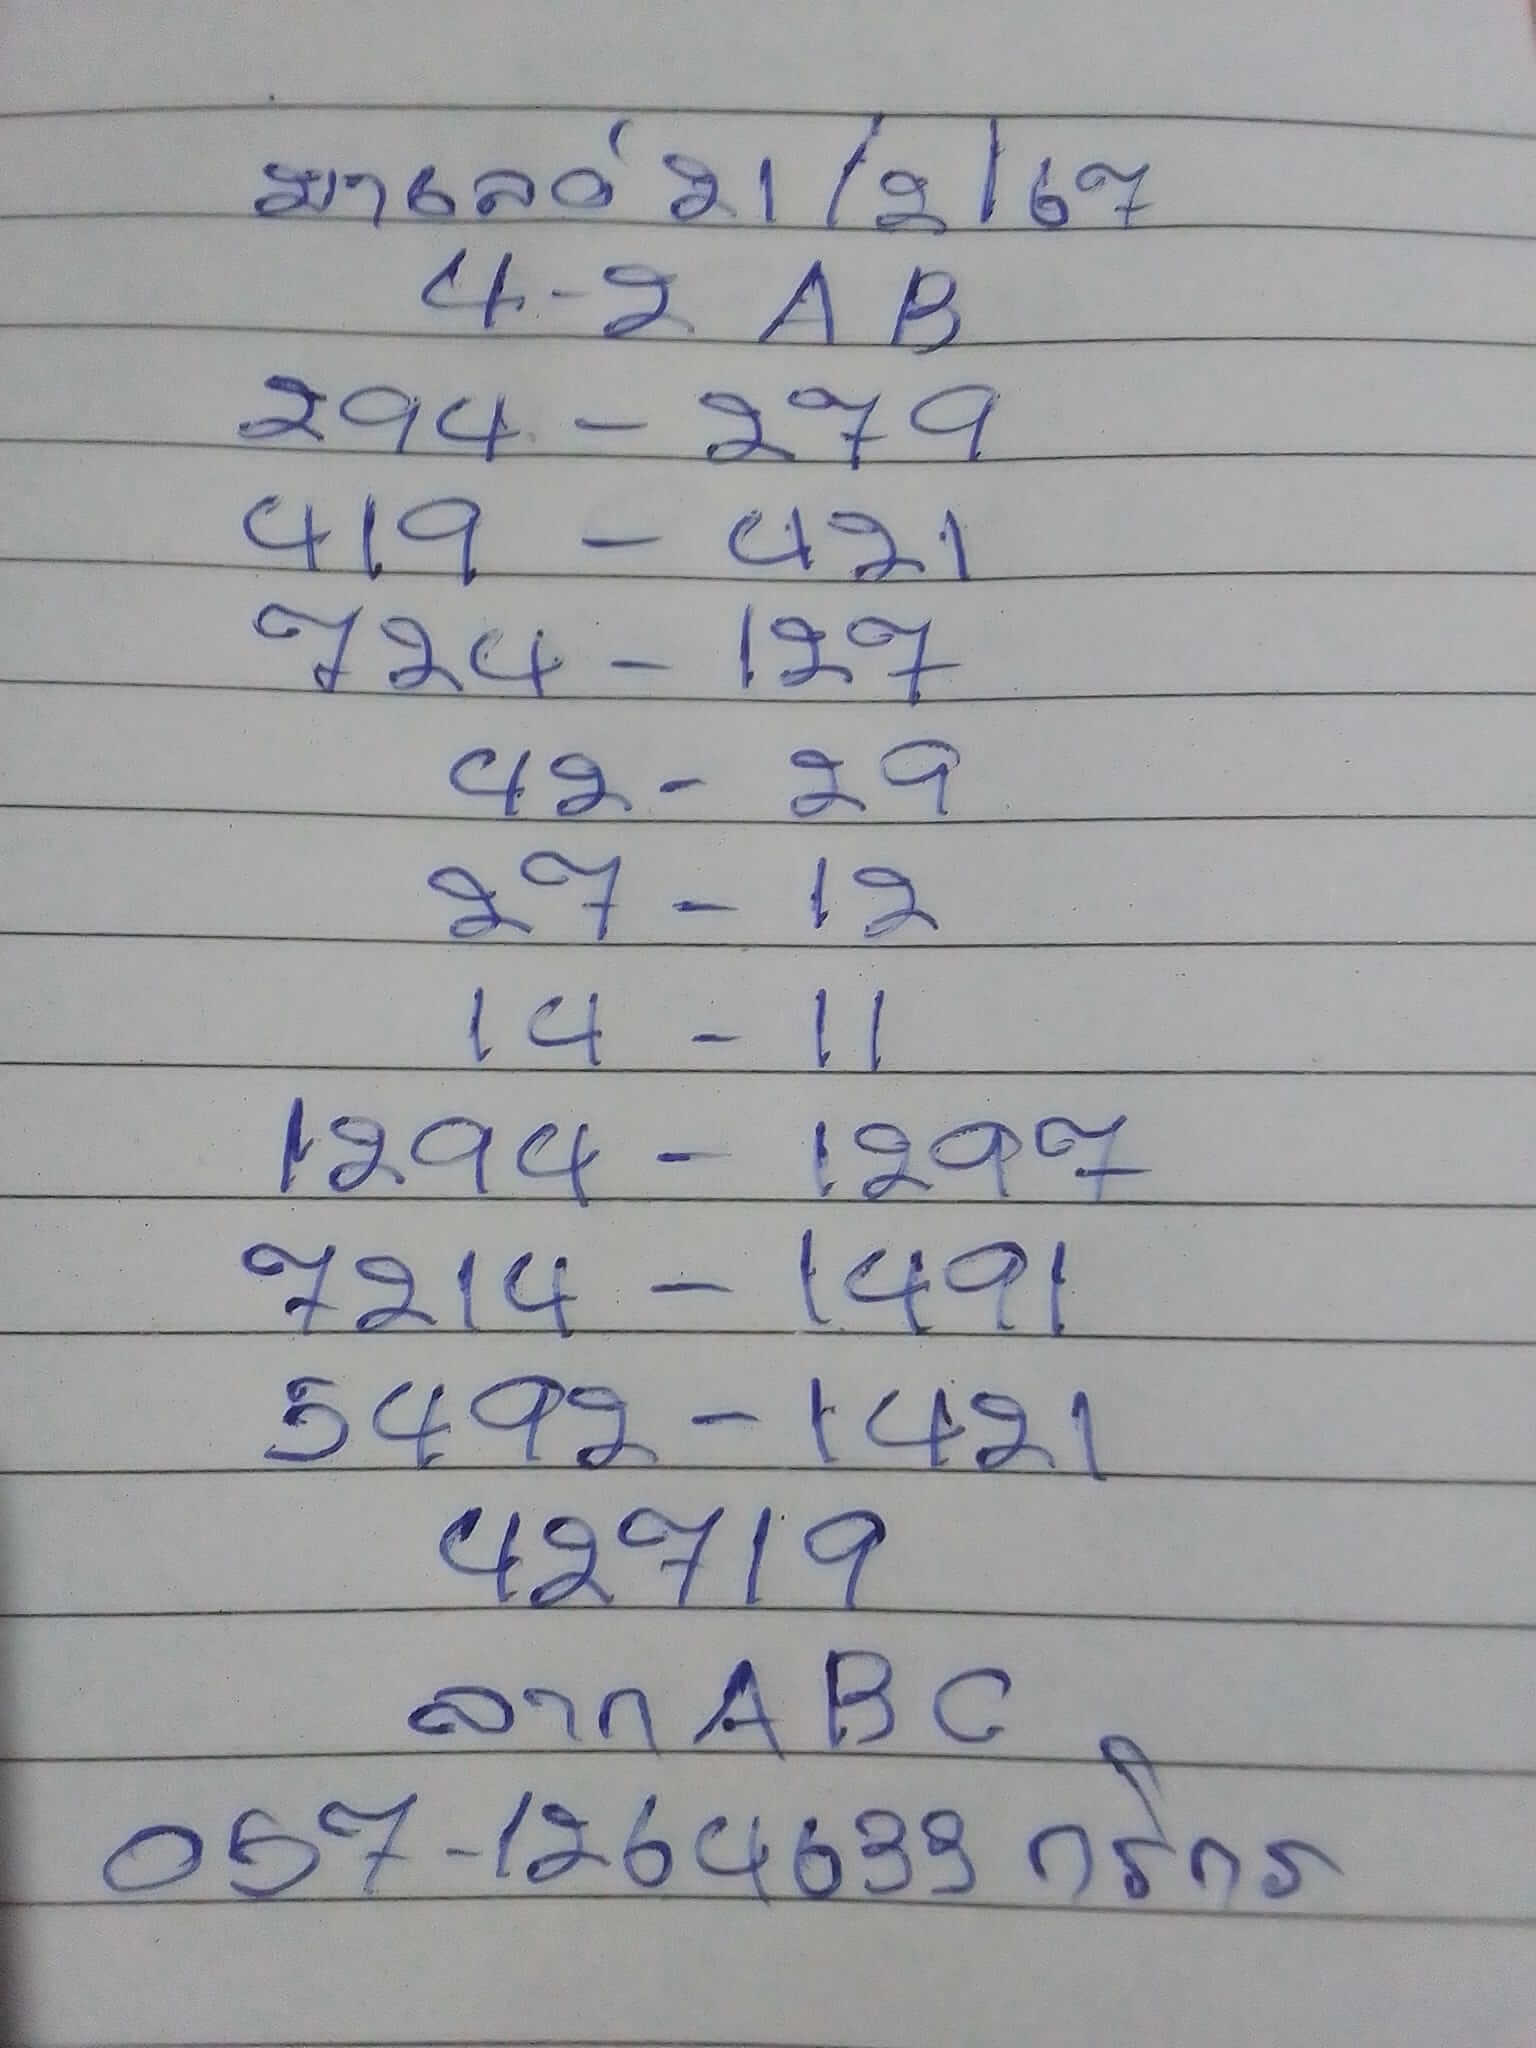 มาเลย์ 21/2/67
4-2 A B
294 - 279
419 - 421
724 - 127
42 - 29
27 - 12
14 - 11
1294 - 1297
7214 - 1491
5492 - 1421
42719
ลาก A B C
057-1264633